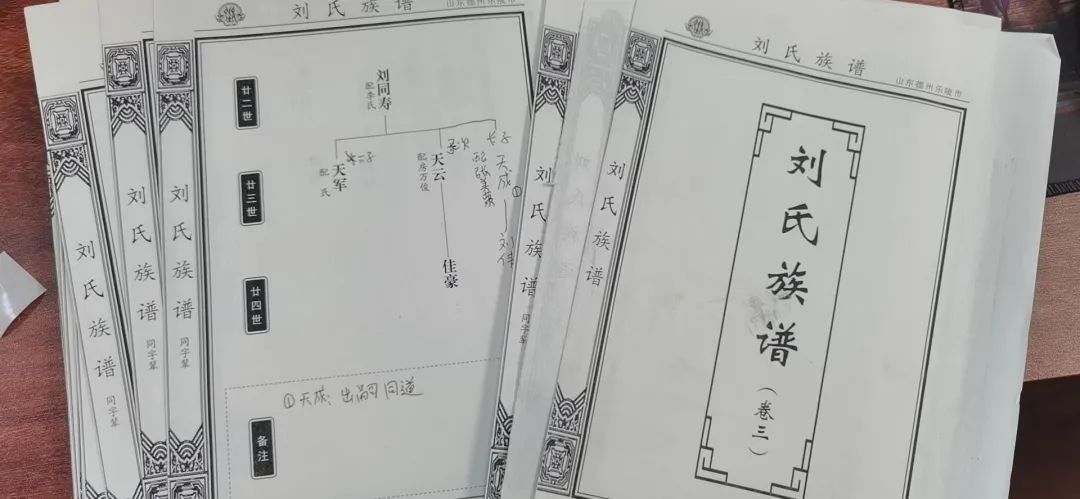 刘氏族谱
同字辈
刘氏族谱
同字辈
刘氏族谱
同字辈
刘氏族谱
山东德州乐陵市
廿二世
廿三世
廿四世
备注
刘同寿
配李氏
长子
天成
配张美荣
①
刘伟
次子
天云
配房万俊
佳豪
三子
天军
配 氏
①天成:出嗣同道
刘氏族谱
同字辈
刘氏族谱
刘氏族谱
山东德州乐陵市
刘氏族谱
(卷三)